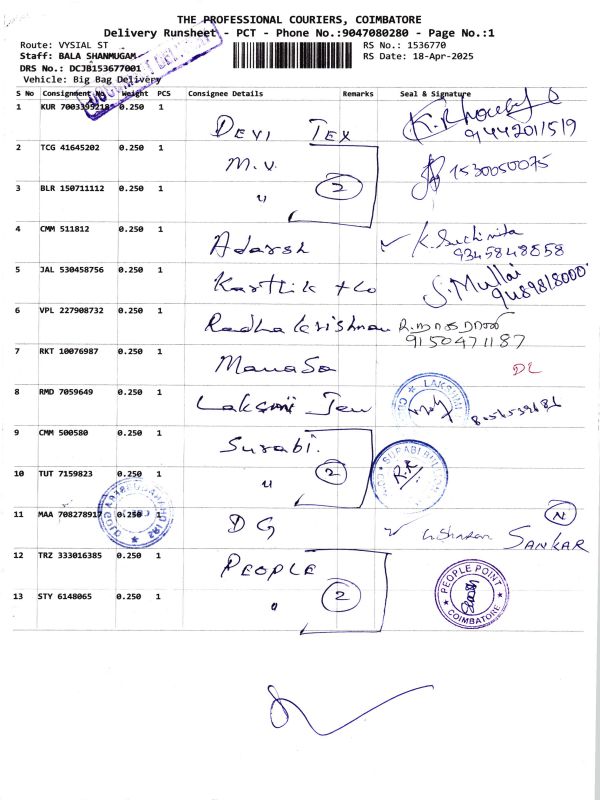 THE PROFESSIONAL COURIERS, COIMBATORE
Delivery Runsheet - PCT - Phone No.:9047080280 - Page No.:1
Route: VYSIAL ST
RS No.: 1536770
Staff: BALA SHANMUGAM
RS Date: 18-Apr-2025
DRS No.: DCJB153677001
Vehicle: Big Bag Delivery
S No Consignment No Weight PCS Consignee Details Remarks Seal & Signature
1 KUR 0.250 1 DEVI TEX 9442011519
2 TCG 41645202 0.250 1 M.V. 2 1530050075
3 BLR 150711112 0.250 1 "
4 CMM 511812 0.250 1 Adarsh K. Suchinita 9345848558
5 JAL 530458756 0.250 1 Karthik + Co S. Mullai
6 VPL 227908732 0.250 1 Radha Krishnan 9150471187
7 RKT 10076987 0.250 1 Manasa DL
8 RMD 7059649 0.250 1 Lakshmi LAKSHMI
9 CMM 500580 0.250 1 Surabi. 2 SURABI R.R
10 TUT 7159823 0.250 1 "
11 MAA 708278917 0.250 1 DG SANKAR N
12 TRZ 333016385 0.250 1 PEOPLE 2 PEOPLE POINT COIMBATORE
13 STY 6148065 0.250 1 "